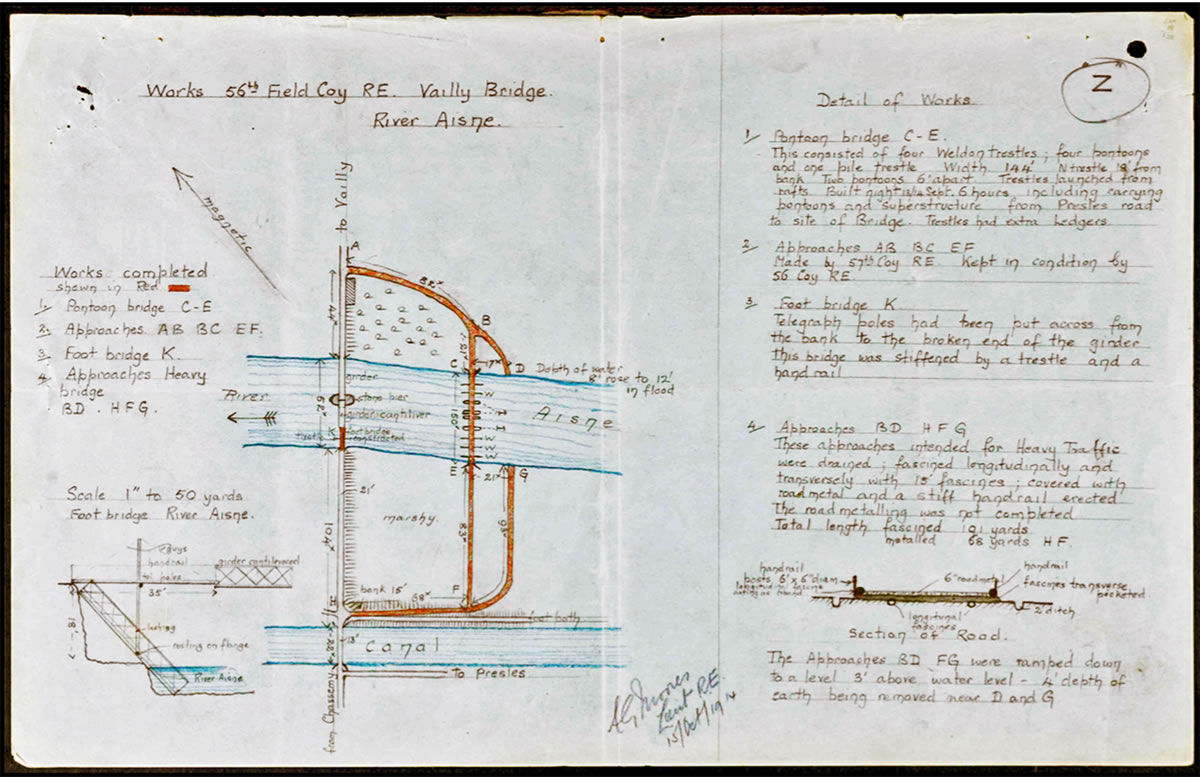 Works 56th Field Coy RE. Vailly Bridge.
River Aisne.
magnetic
to Vailly
Works completed
shewn in Red
1/ Pontoon bridge C-E
2. Approaches AB BC EF.
3 Foot bridge K.
4 Approaches Heavy
bridge
BD. HFG.
A
82"
44"
B
C
D
Depth of water
8' rose to 12'
in flood
River
Aisne
girder
stone pier
girder cantiliver
foot bridge
constructed
K
62"
150'
E
21"
G
21'
104"
marshy.
83"
bank 15'
68"
F
H
foot path
13'
Canal
to Presles
from Chassemy
Scale 1" to 50 yards
Foot bridge River Aisne.
guys
handrail
tel poles
girder cantilevered
35'
18'
lashing
resting on flange
River Aisne
Lieut RE.
15/Oct/1914
Z
Detail of Works.
1/ Pontoon bridge C-E.
This consisted of four Weldon trestles; four pontoons
and one pile trestle Width 144' N trestle 18' from
bank Two pontoons 6' apart. Trestles launched from
rafts. Built night 13/14 Sept. 6 hours including carrying
pontoons and superstructure from Presles road
to site of Bridge. Trestles had extra Ledgers.
2/ Approaches AB BC EF
Made by 57th Coy RE Kept in condition by
56 Coy RE
3 Foot bridge K
Telegraph poles had been put across from
the bank to the broken end of the girder
This bridge was stiffened by a trestle and a
hand rail
4/ Approaches BD HFG
These approaches intended for Heavy Traffic
were drained; fascined longitudinally and
transversely with 15' fascines; covered with
road metal and a stiff handrail erected
The road metalling was not completed
Total length fascined 191 yards
metalled 68 yards HF.
handrail
posts 6' x 6" diam
longitud'nl fascine
acting as riband
6" roadmetal
handrail
fascines transverse
picketed
2' ditch
longitunal
fascines
Section of Road.
The Approaches BD FG were ramped down
to a level 3' above water level - 4' depth of
earth being removed near D and G